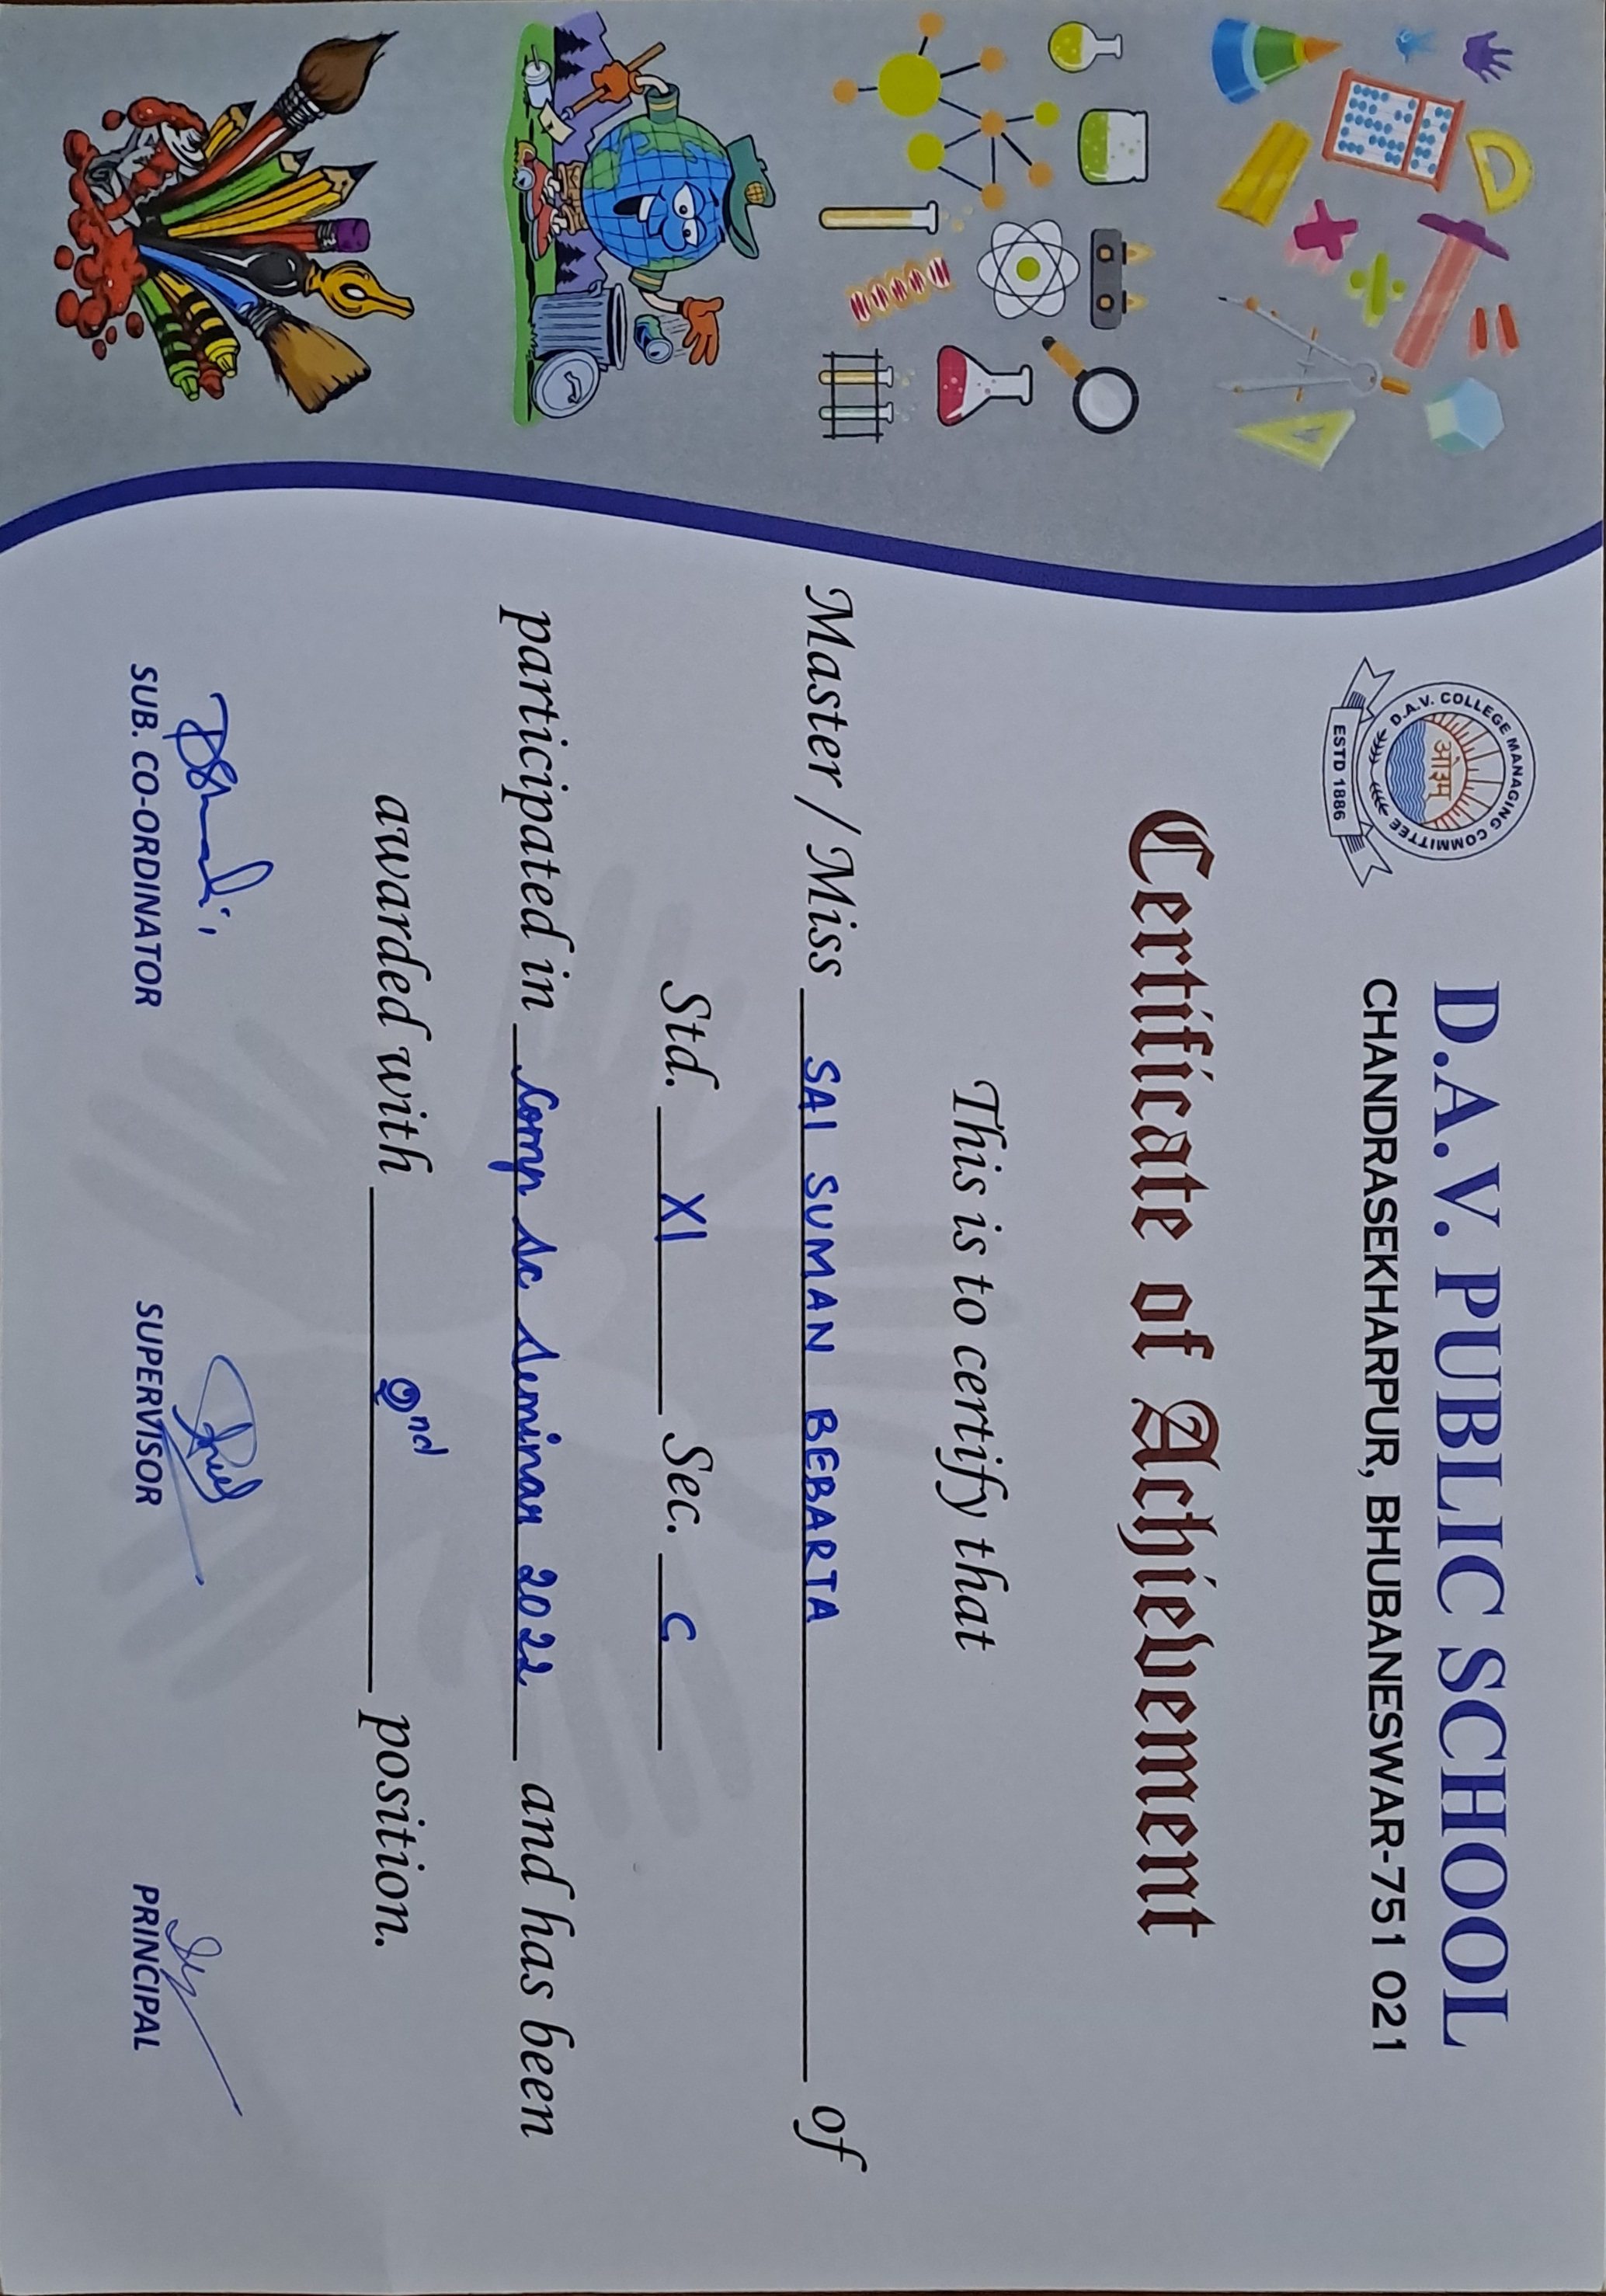 D.A.V. COLLEGE MANAGING COMMITTEE
ओ३म्
ESTD 1886
D.A.V. PUBLIC SCHOOL
CHANDRASEKHARPUR, BHUBANESWAR-751 021
Certificate of Achievement
This is to certify that
Master / Miss SAI SUMAN BEBARTA of
Std. XI Sec. C
participated in Comp Sc Seminar 2022 and has been
awarded with 2nd position.
SUB. CO-ORDINATOR SUPERVISOR PRINCIPAL